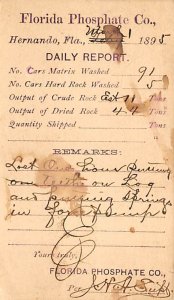 Florida Phosphate Co.,
Hernando, Fla., 1 1895
DAILY REPORT.
No. Cars Matrix Washed 91
No. Cars Hard Rock Washed 5
Output of Crude Rock 71 Tons
Output of Dried Rock 44 Tons
Quantity Shipped Tons
REMARKS:
Lost One Hour Putting
on on Log
and putting Springs
in Pump
Yours truly,
FLORIDA PHOSPHATE CO.,
Per Supt.